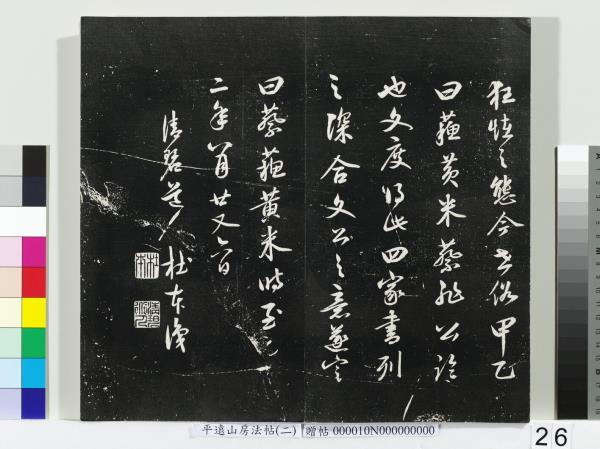 狂怪之態今世俗甲乙
曰蘇黃米蔡非公論
也文度得此四家書列
之深合文公之意遂定
曰蔡蘇黃米時至正
二年八月廿又日
清碧道人杜本識
平遠山房法帖(二) 贈帖 000010N000000000
26